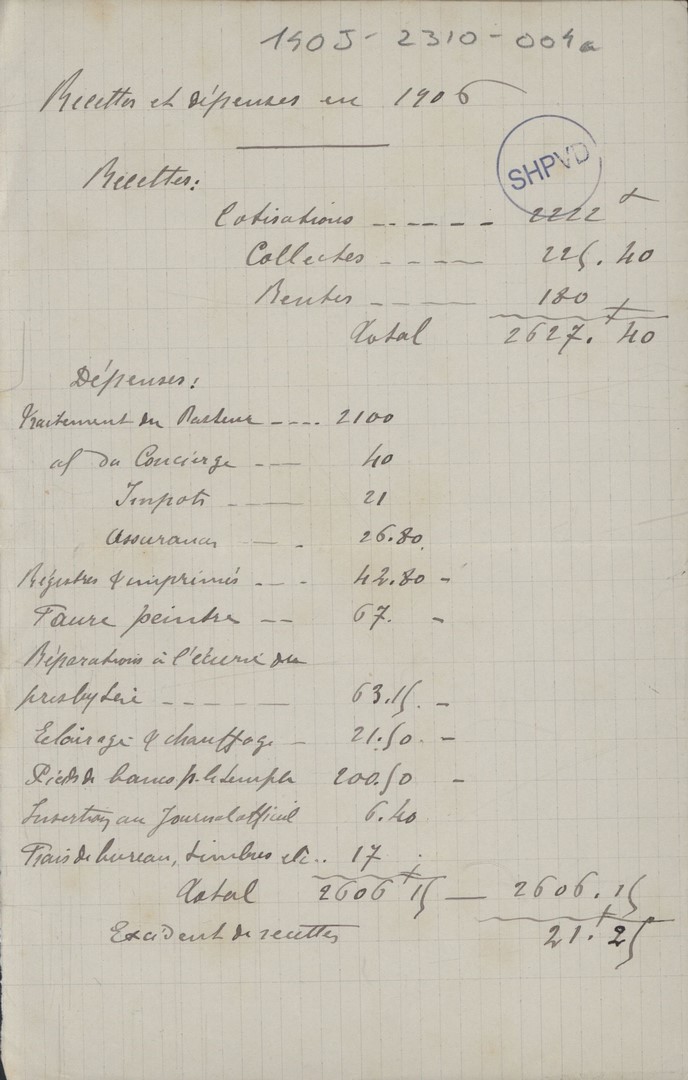 190J - 2310 - 004a
Recettes et dépenses en 1906
SHPVD
Recettes:
Cotisations ------ 2222
Collectes ---- 225.40
Rentes ---- 180
Total 2627.40
Dépenses:
Traitement du Pasteur ---- 2100
d° du Concierge --- 40
Impots --- 21
Assurances --- 26.80
Régistres & imprimés --- 42.80 -
Faure peintre -- 67. -
Réparations à l'écurie du
presbytère ------ 63.15. -
Eclairage & chauffage - 21.50. -
Pieds de bancs p. le temple 200.50 -
Insertion au Journal officiel 6.40
Frais de bureau, timbres etc.. 17
Total 2606 15 — 2606.15
Excédent de recettes 21.25